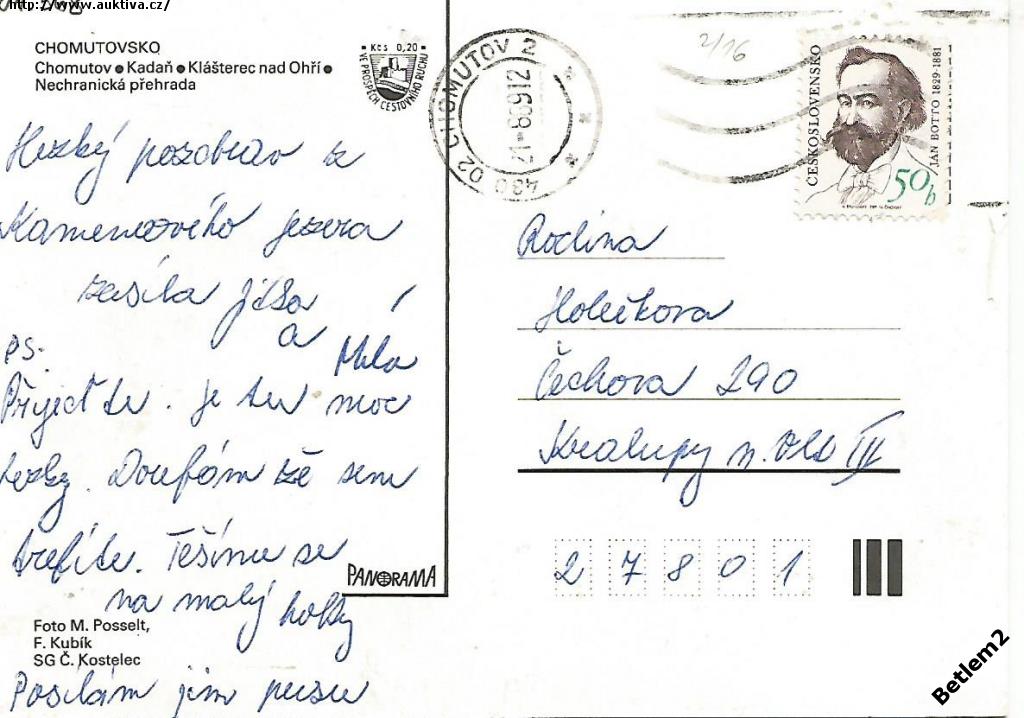 http://www.auktiva.cz/
CHOMUTOVSKO
Chomutov ● Kadaň ● Klášterec nad Ohří ●
Nechranická přehrada
Kčs 0,20
VE PROSPĚCH CESTOVNÍHO RUCHU
430 02 CHOMUTOV 2
21-8 89 12
2/16
ČESKOSLOVENSKO
JÁN BOTTO 1829-1881
50 h
Hezký pozdrav z
Kamencového jezera
zasílá
a
Míla
PS:
Přijeďte. Je tu moc
hezky. Doufám že sem
trefíte. Těšíme se
na malý holky
Posílám jim pusu
Rodina
Holečkova
Čechova 290
Kralupy n. Vlt III
2 7 8 0 1
PANORAMA
Foto M. Posselt,
F. Kubík
SG Č. Kostelec
Betlem2